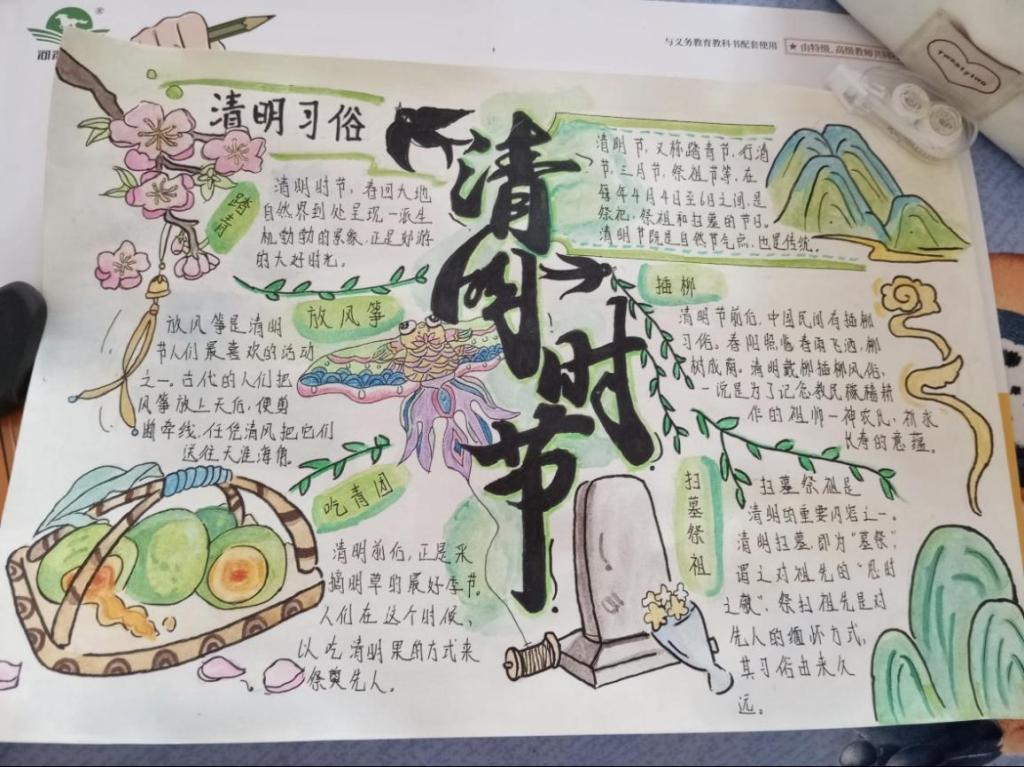 与义务教育教科书配套使用
★由特级、高级教师
twentytwo
清明习俗
清明时节
清明节，又称踏青节、行清
节、三月节、祭祖节等，在
每年4月4日至6日之间，是
祭祀、祭祖和扫墓的节日。
清明节既是自然节气点，也是传统。
踏青
清明时节，春回大地
自然界到处呈现一派生
机勃勃的景象，正是郊游
的大好时光。
放风筝
放风筝是清明
节人们最喜欢的活动
之一。古代的人们把
风筝放上天后，便剪
断牵线，任凭清风把它们
送往天涯海角。
插柳
清明节前后，中国民间有插柳
习俗。春阳照临春雨飞洒，柳
树成荫。清明戴柳插柳风俗，
一说是为了记念教民稼穑耕
作的祖师一神农氏，祈求
长寿的意蕴。
吃青团
清明前后，正是采
摘明草的最好季节。
人们在这个时候，
以吃清明果的方式来
祭奠先人。
扫墓祭祖
扫墓祭祖是
清明的重要内容之一。
清明扫墓，即为“墓祭”，
谓之对祖先的“思时
之敬”，祭扫祖先是对
先人的缅怀方式，
其习俗由来久
远。